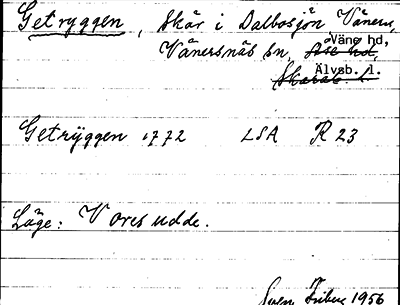 Getryggen, Skär i Dalbosjön Vänern,
Vänersnäs sn, Åse hd, Väne hd,
Skarab. l. Älvsb. l.
Getryggen 1772 LSA R 23
Läge: V ores udde.
Sven Friberg 1956